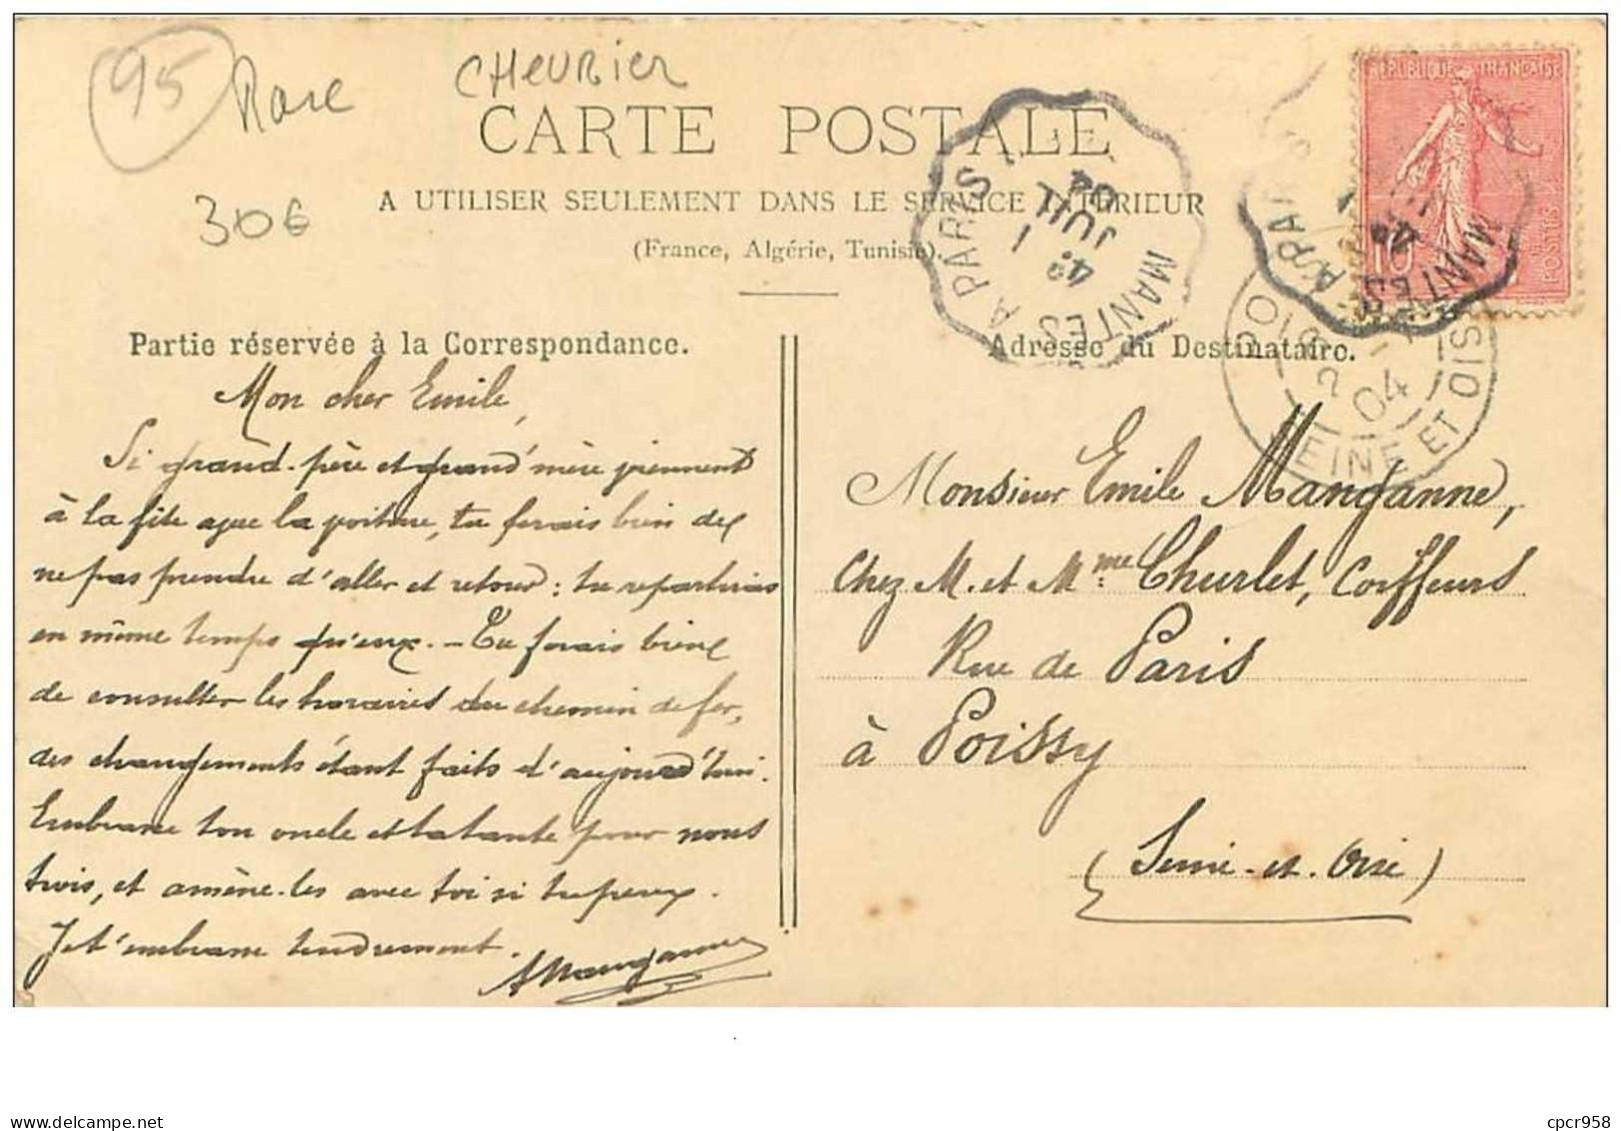 95
Rare
CHEVRIER
30€
CARTE POSTALE
A UTILISER SEULEMENT DANS LE SERVICE INTÉRIEUR
(France, Algérie, Tunisie).
MANTES A PARIS
4º
1
JUIL
04
REPUBLIQUE FRANÇAISE
10
POSTES
MANTES A PARIS
4º
POISSY
2
04
SEINE ET OISE
Partie réservée à la Correspondance.
Mon cher Emile,
Si grand-père et grand'mère viennent
à la fête avec la voiture, tu ferais bien de
ne pas prendre d'aller et retour : tu repartirais
en même temps qu'eux. – Tu ferais bien
de consulter les horaires du chemin de fer,
des changements étant faits d'aujourd'hui.
Embrasse ton oncle et ta tante pour nous
trois, et amène-les avec toi si tu peux.
Je t'embrasse tendrement.
AManganne
Adresse du Destinataire.
Monsieur Emile Manganne,
Chez M. et Mme Churlet, Coiffeurs
Rue de Paris
à Poissy
(Seine-et-Oise)
delcampe.net
cpcr958